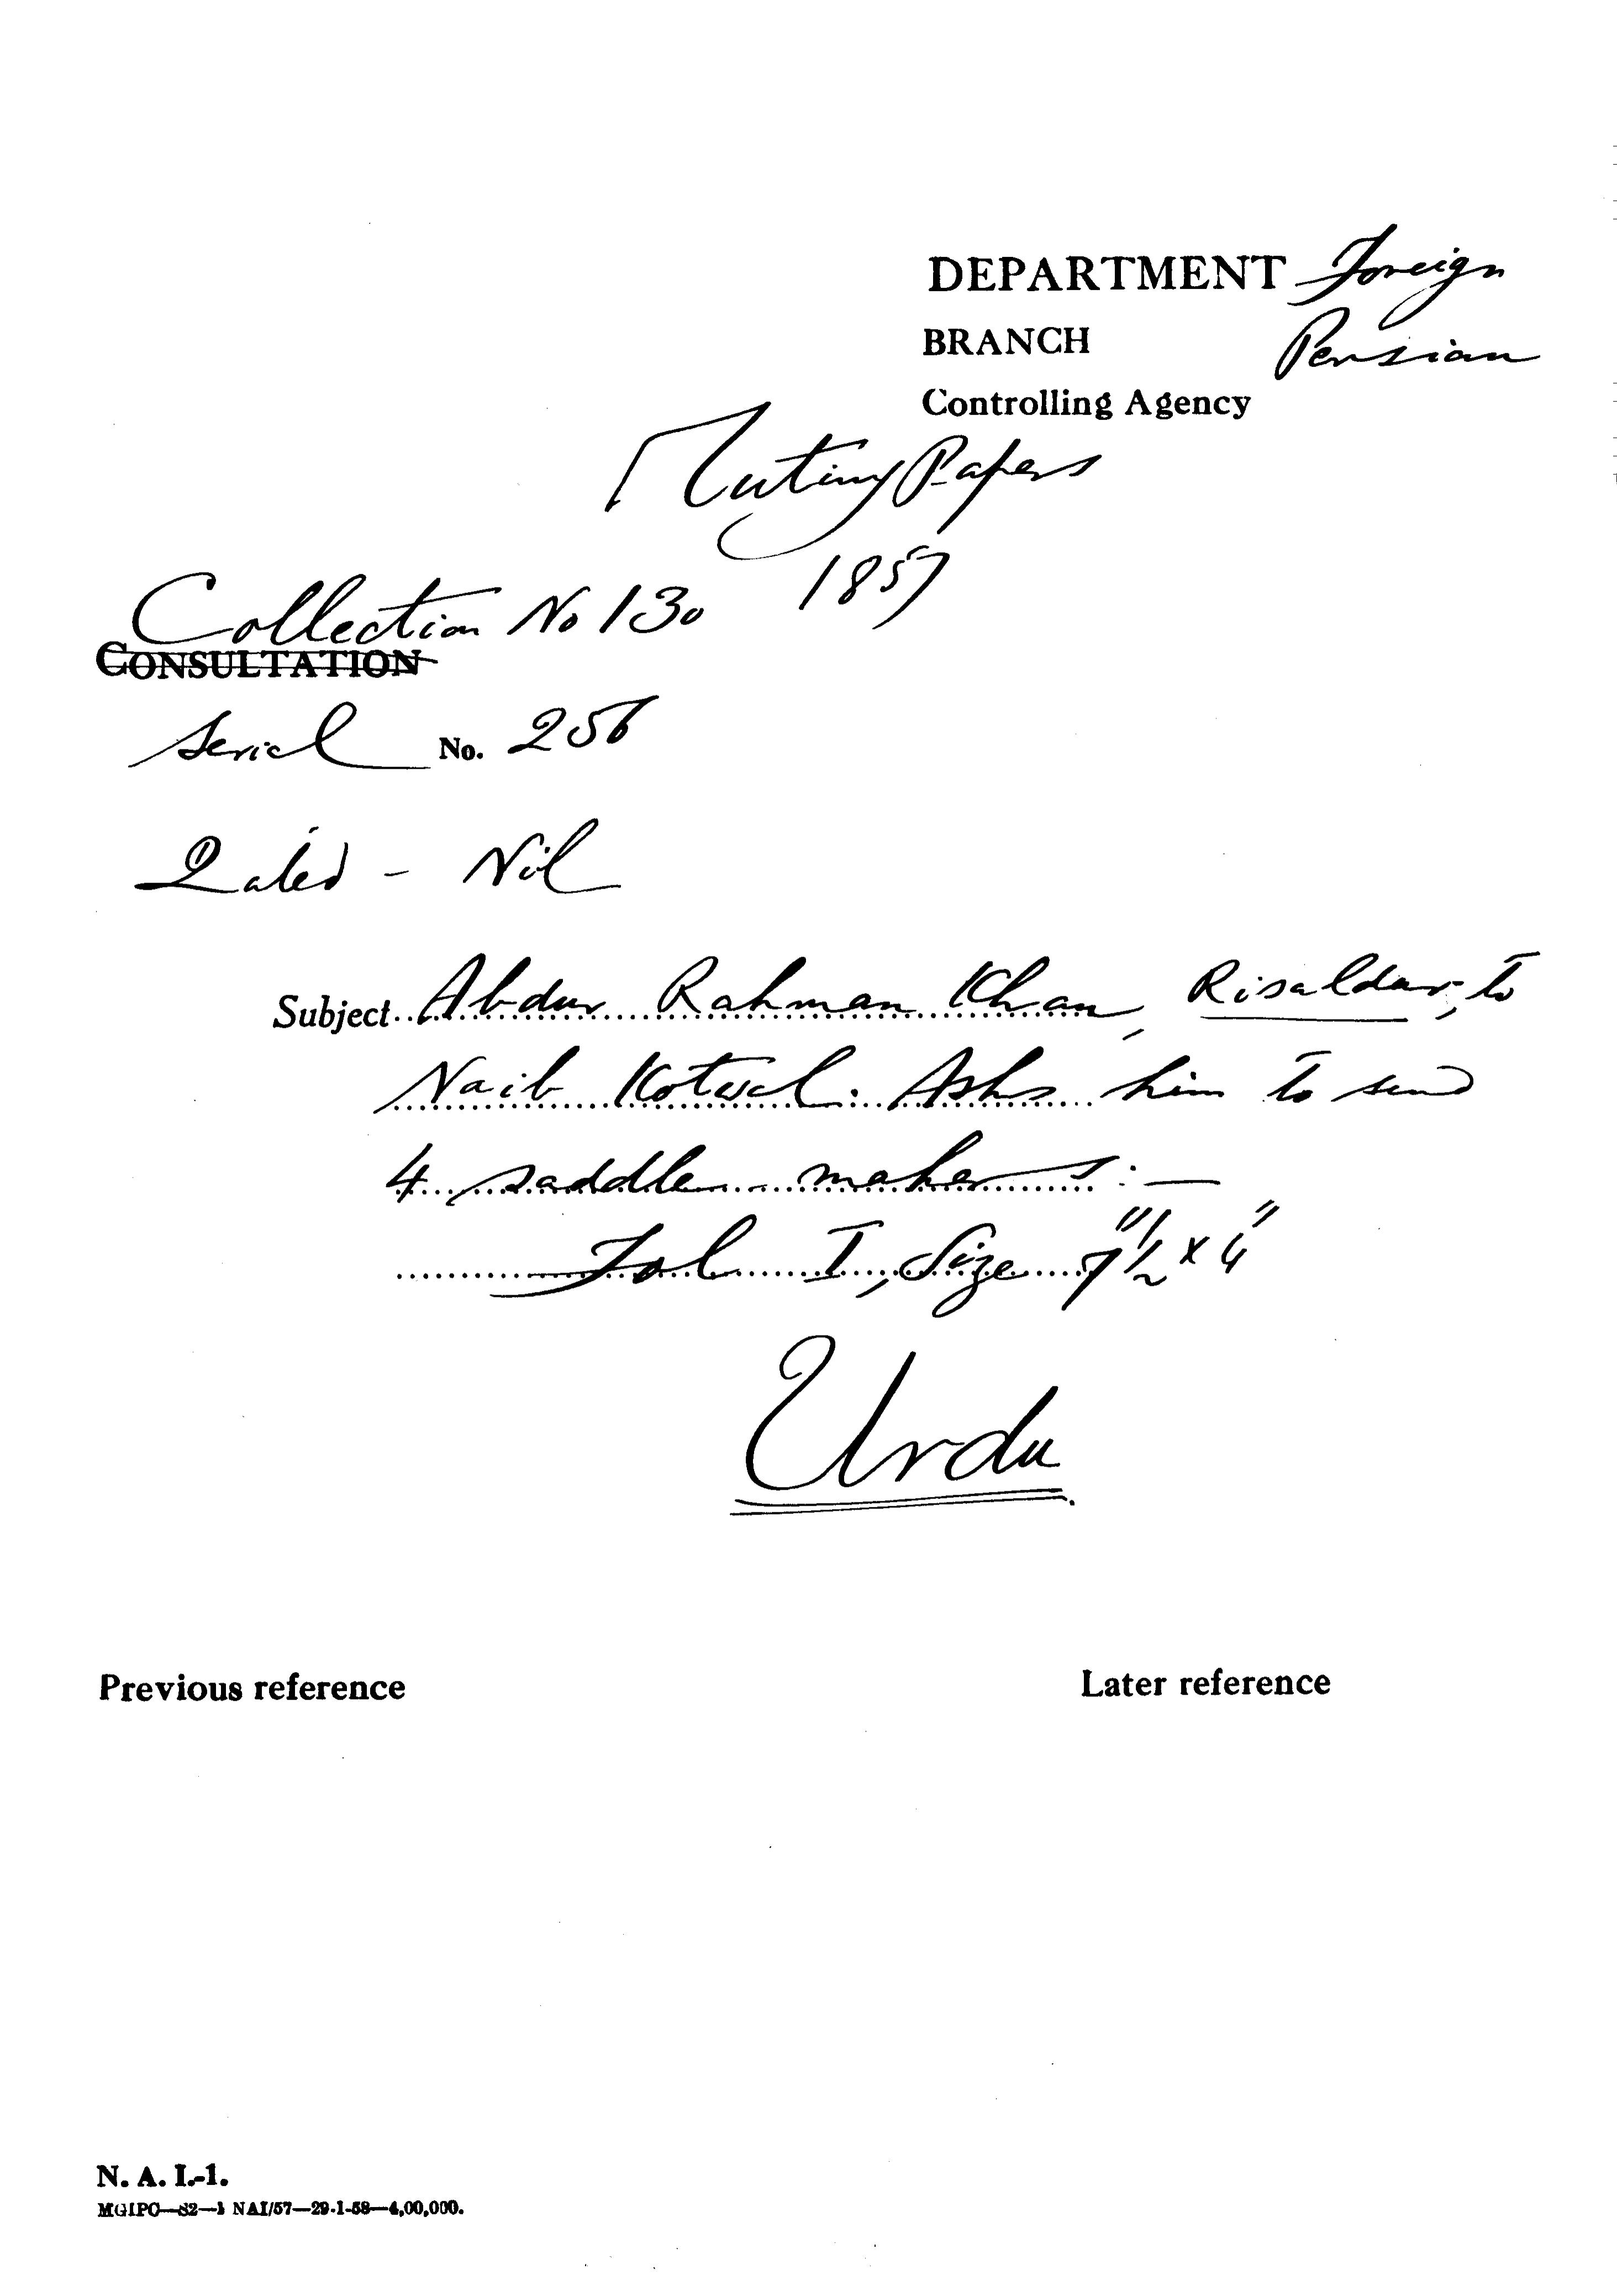 DEPARTMENT Foreign
BRANCH Persian
Controlling Agency
Mutiny Papers
1857
Collection No 130
CONSULTATION
Serial No. 256
Dated - Nil
Subject Abdur Rahman Khan, Risaldar, to
Naib Kotwal. Asks him to send
4 saddle makers:—
Fol I, Size 7"½ x 4"
Urdu
Previous reference
Later reference
N. A. I.-1.
MGIPC—S2—1 NAI/57—29-1-58—4,00,000.